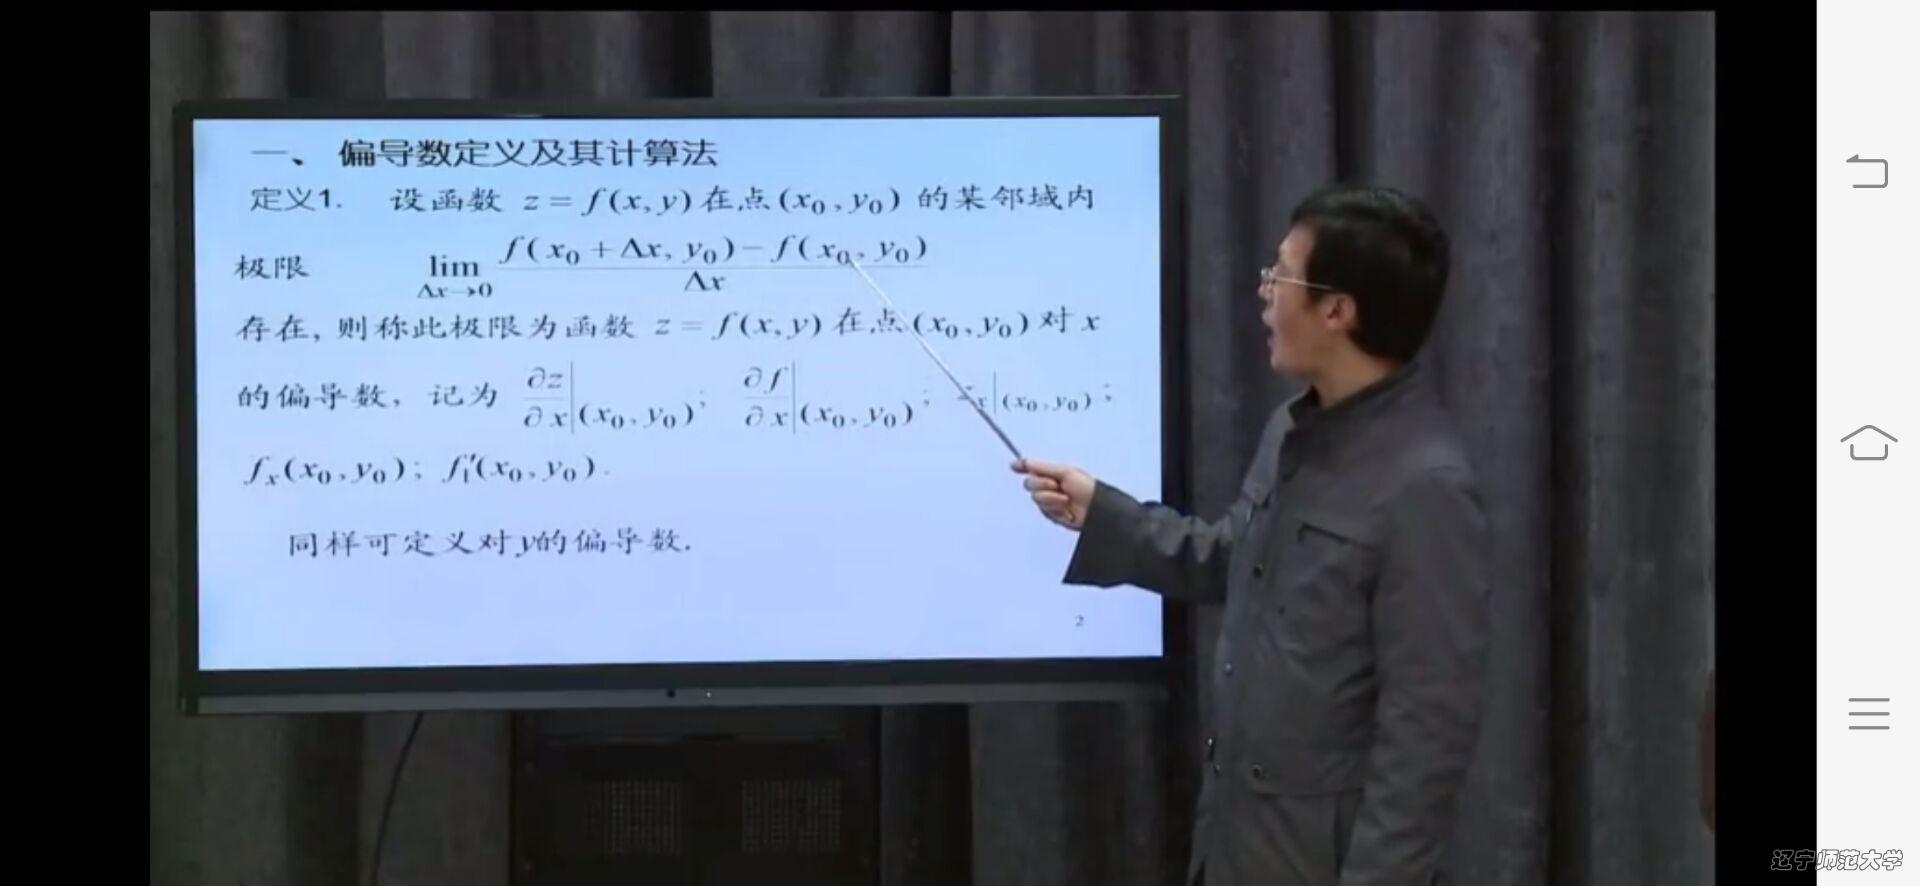 一、 偏导数定义及其计算法
定义1. 设函数 z = f(x, y) 在点 (x₀, y₀) 的某邻域内
极限 lim Δx→0 f(x₀ + Δx, y₀) − f(x₀, y₀) / Δx
存在, 则称此极限为函数 z = f(x, y) 在点 (x₀, y₀) 对 x
的偏导数, 记为 ∂z/∂x|(x₀, y₀); ∂f/∂x|(x₀, y₀); x|(x₀, y₀);
fₓ(x₀, y₀); f₁′(x₀, y₀).
同样可定义对y的偏导数.
2
辽宁师范大学